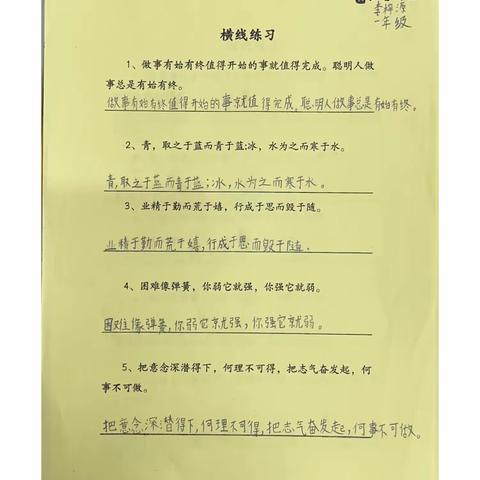 李梓源
一年级
横线练习
1、做事有始有终值得开始的事就值得完成。聪明人做
事总是有始有终。
做事有始有终值得开始的事就值得完成。聪明人做事总是有始有终。
2、青，取之于蓝而青于蓝;冰，水为之而寒于水。
青,取之于蓝而青于蓝;冰,水为之而寒于水。
3、业精于勤而荒于嬉，行成于思而毁于随。
业精于勤而荒于嬉,行成于思而毁于随。
4、困难像弹簧，你弱它就强，你强它就弱。
困难像弹簧,你弱它就强,你强它就弱。
5、把意念深潜得下，何理不可得，把志气奋发起，何
事不可做。
把意念深潜得下,何理不可得,把志气奋发起,何事不可做。